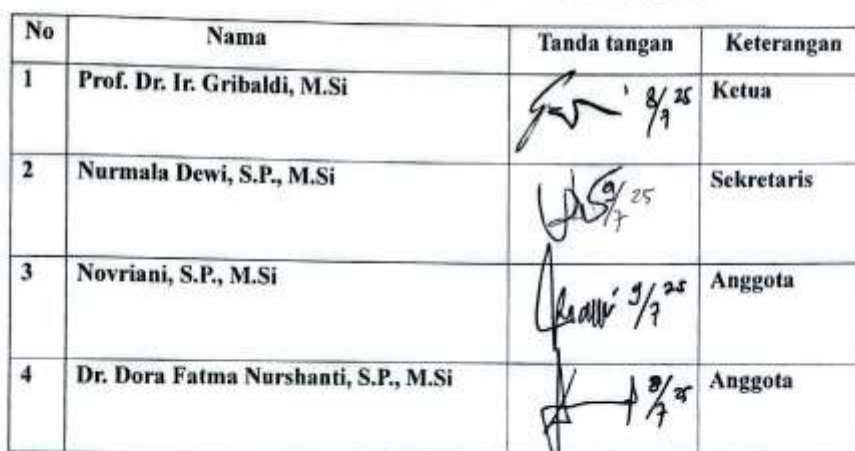 No Nama Tanda tangan Keterangan
1 Prof. Dr. Ir. Gribaldi, M.Si 8/7 25 Ketua
2 Nurmala Dewi, S.P., M.Si 9/7 25 Sekretaris
3 Novriani, S.P., M.Si 9/7 25 Anggota
4 Dr. Dora Fatma Nurshanti, S.P., M.Si 8/7 25 Anggota